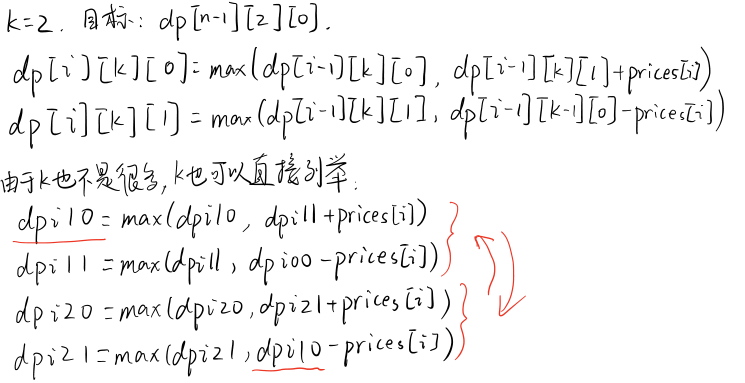 k=2. 目标: dp[n-1][2][0].
dp[i][k][0]=max(dp[i-1][k][0], dp[i-1][k][1]+prices[i])
dp[i][k][1]=max(dp[i-1][k][1], dp[i-1][k-1][0]-prices[i])
由于k也不是很多,k也可以直接列举:
dpi10=max(dpi10, dpi11+prices[i])
dpi11=max(dpi11, dpi00-prices[i])
dpi20=max(dpi20,dpi21+prices[i])
dpi21=max(dpi21,dpi10-prices[i])